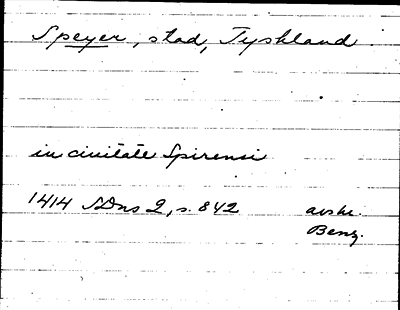 Speyer, stad, Tyskland.
in civitate Spirensi
1414 SDns 2, s. 842 avskr.
Benz.